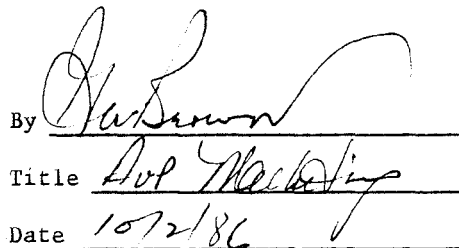 By Brown
Title AVP Marketing
Date 10/2/86